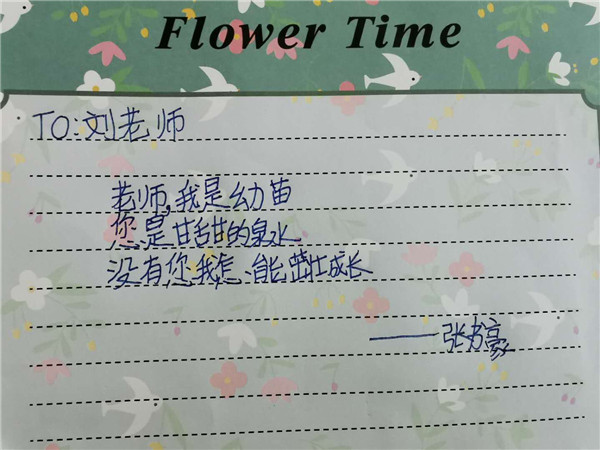 Flower Time
TO:刘老师
老师,我是幼苗
您是甘甜的泉水
没有您我怎能茁壮成长
——张豪